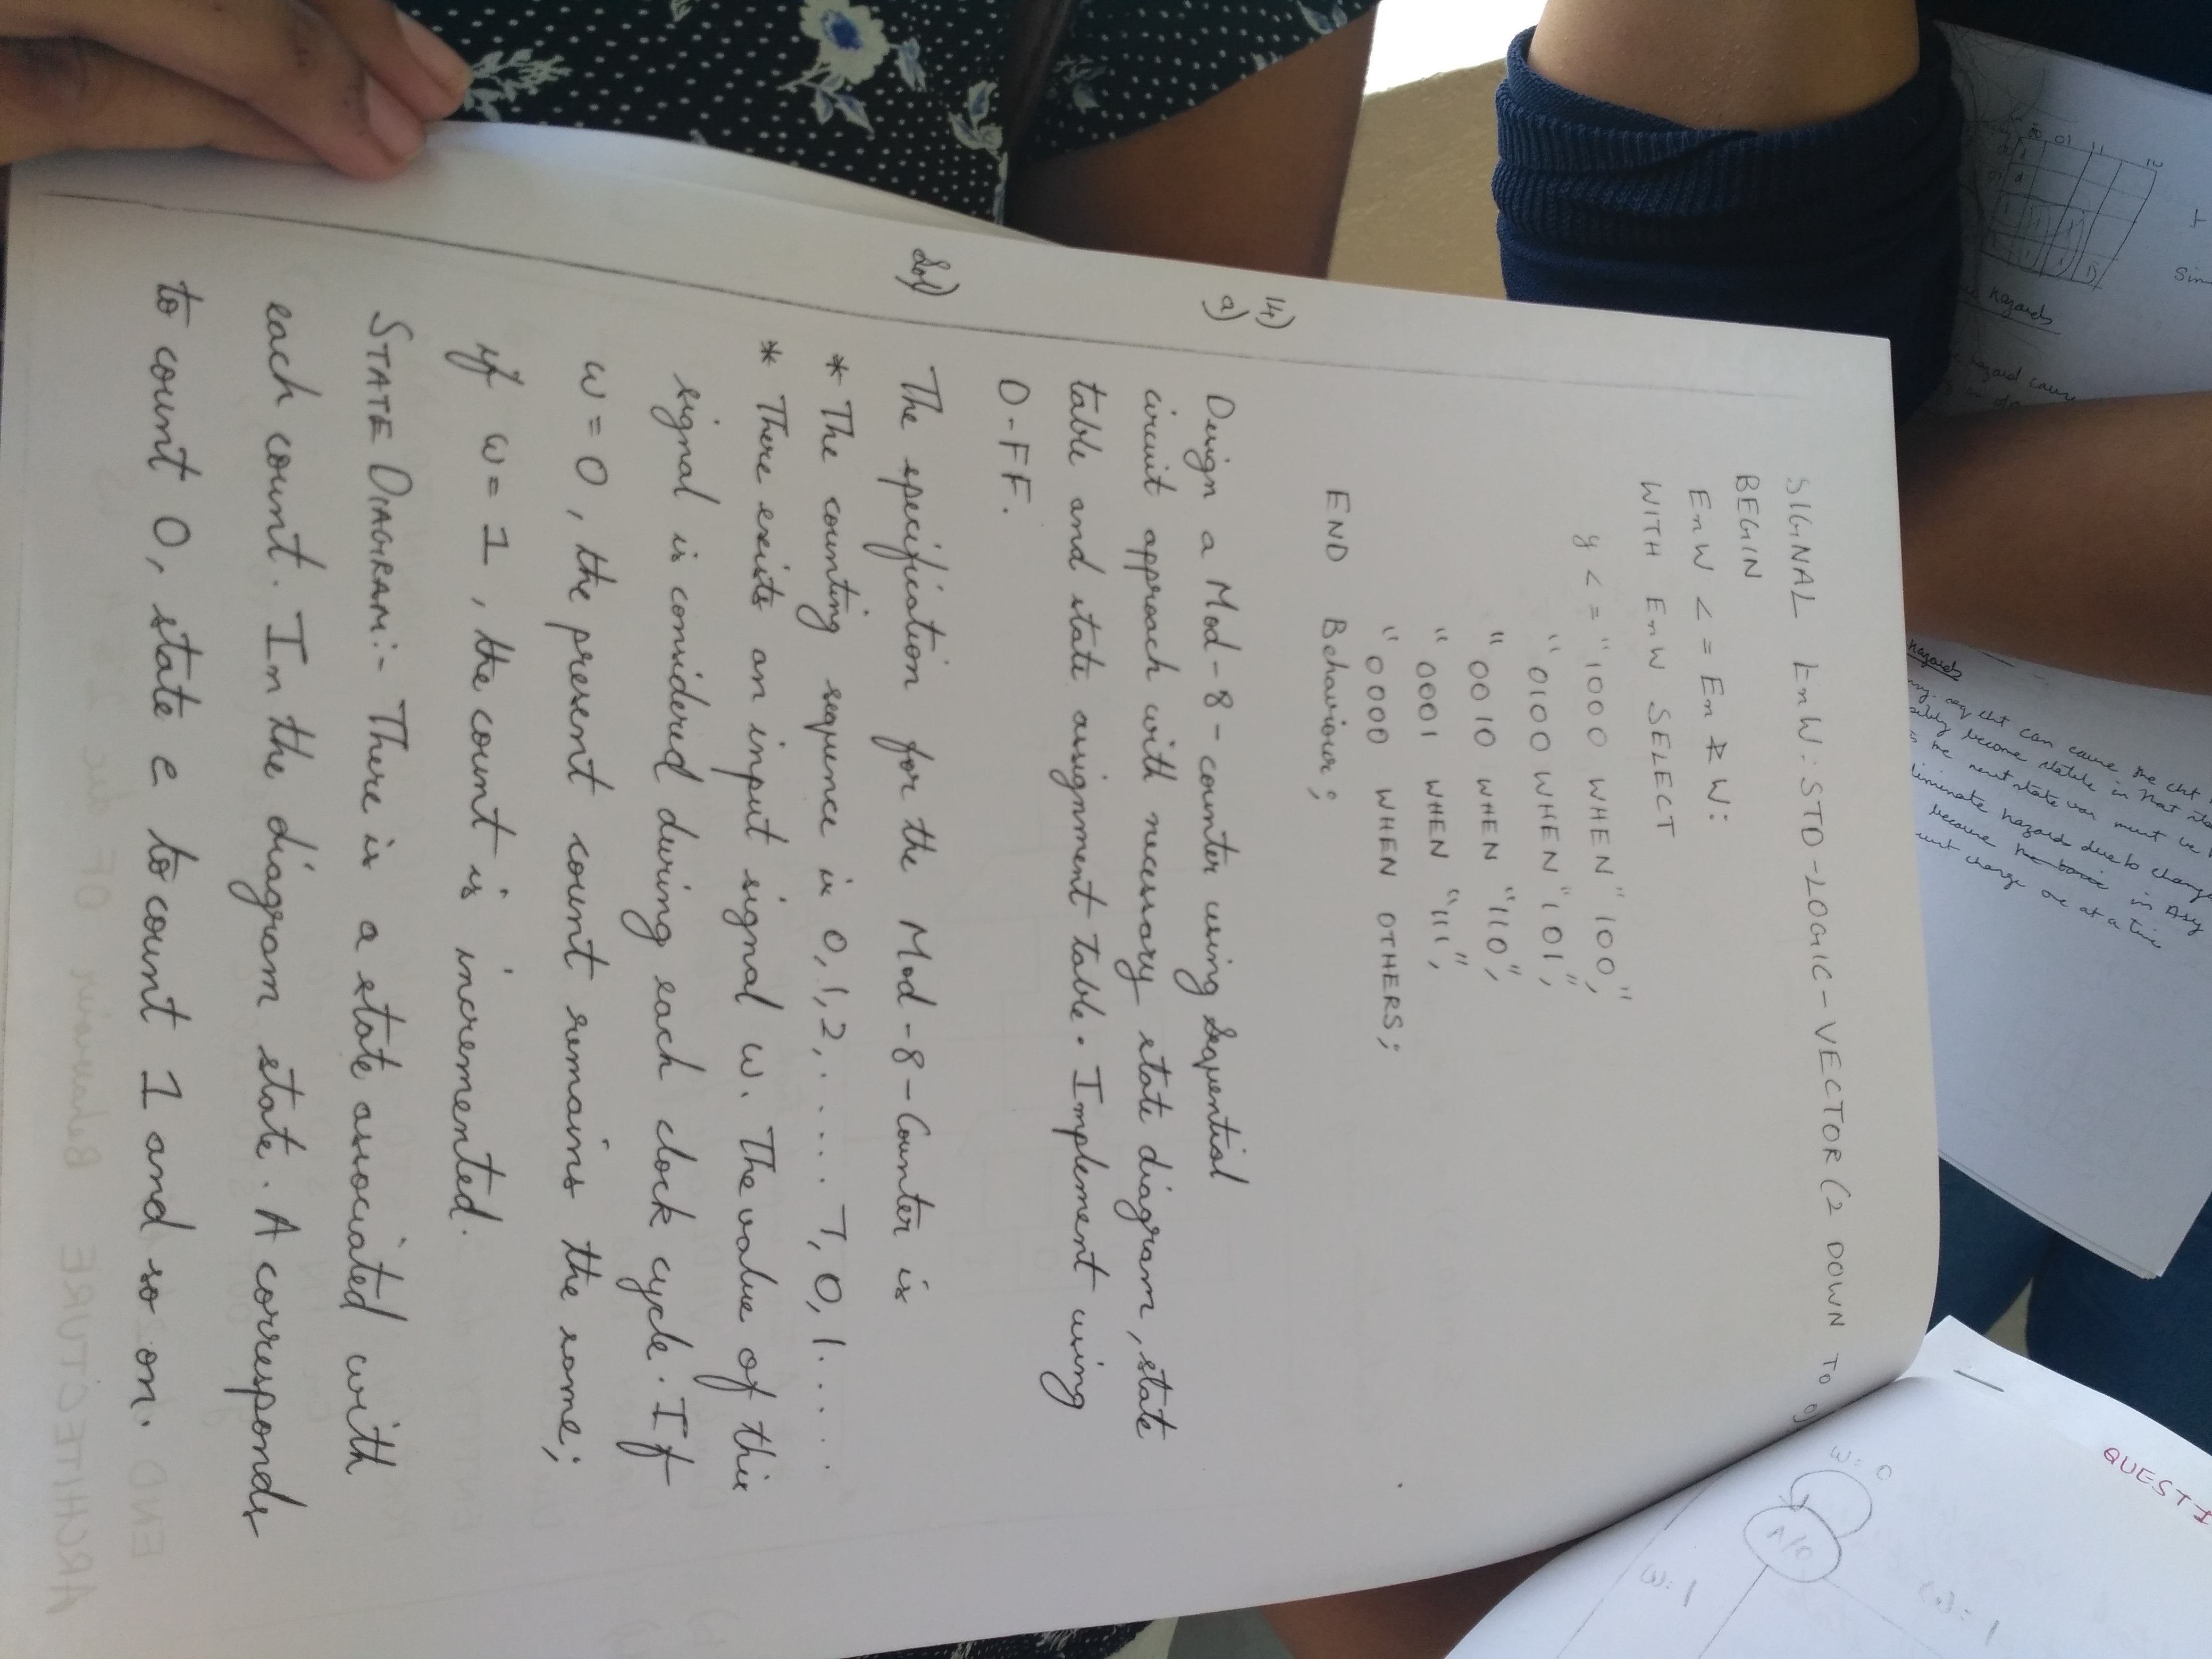 SIGNAL EnW : STD-LOGIC-VECTOR (2 DOWN TO 0)
BEGIN
EnW <= En & W:
WITH EnW SELECT
y <= "1000 WHEN "100",
"0100 WHEN "101",
"0010 WHEN "110",
"0001 WHEN "111",
"0000 WHEN OTHERS;
END Behaviour;
4)
a) Design a Mod-8-counter using Sequential
circuit approach with necessary state diagram, state
table and state assignment table. Implement using
D-FF.
Sol) The specification for the Mod-8-Counter is
* The counting sequence is 0,1,2,.....7,0,1.....
* There exists an input signal w. The value of this
signal is considered during each clock cycle. If
w=0, the present count remains the same;
if w=1, the count is incremented.
STATE DIAGRAM:- There is a state associated with
each count. In the diagram state. A corresponds
to count 0, state e to count 1 and so on.
QUESTI
w=0
A/0
w=1
w=1
hazards
hazard cause
00 01 11 10
hazards
seq ckt can cause the ckt
become stable in that
the next state var must be
eliminate hazards due to change
because in Asy
must change one at a time